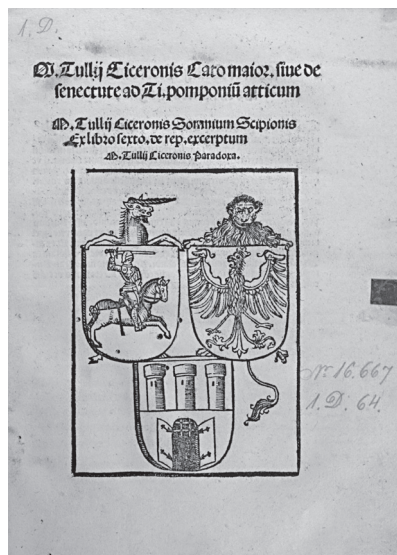 1. D.
M. Tullij Ciceronis Cato maior. siue de
senectute ad Ti. pomponiū atticum
M. Tullij Ciceronis Somnium Scipionis
Ex libro sexto. de rep. excerptum
M. Tullij Ciceronis Paradoxa.
Nr 16.667
1. D. 64.